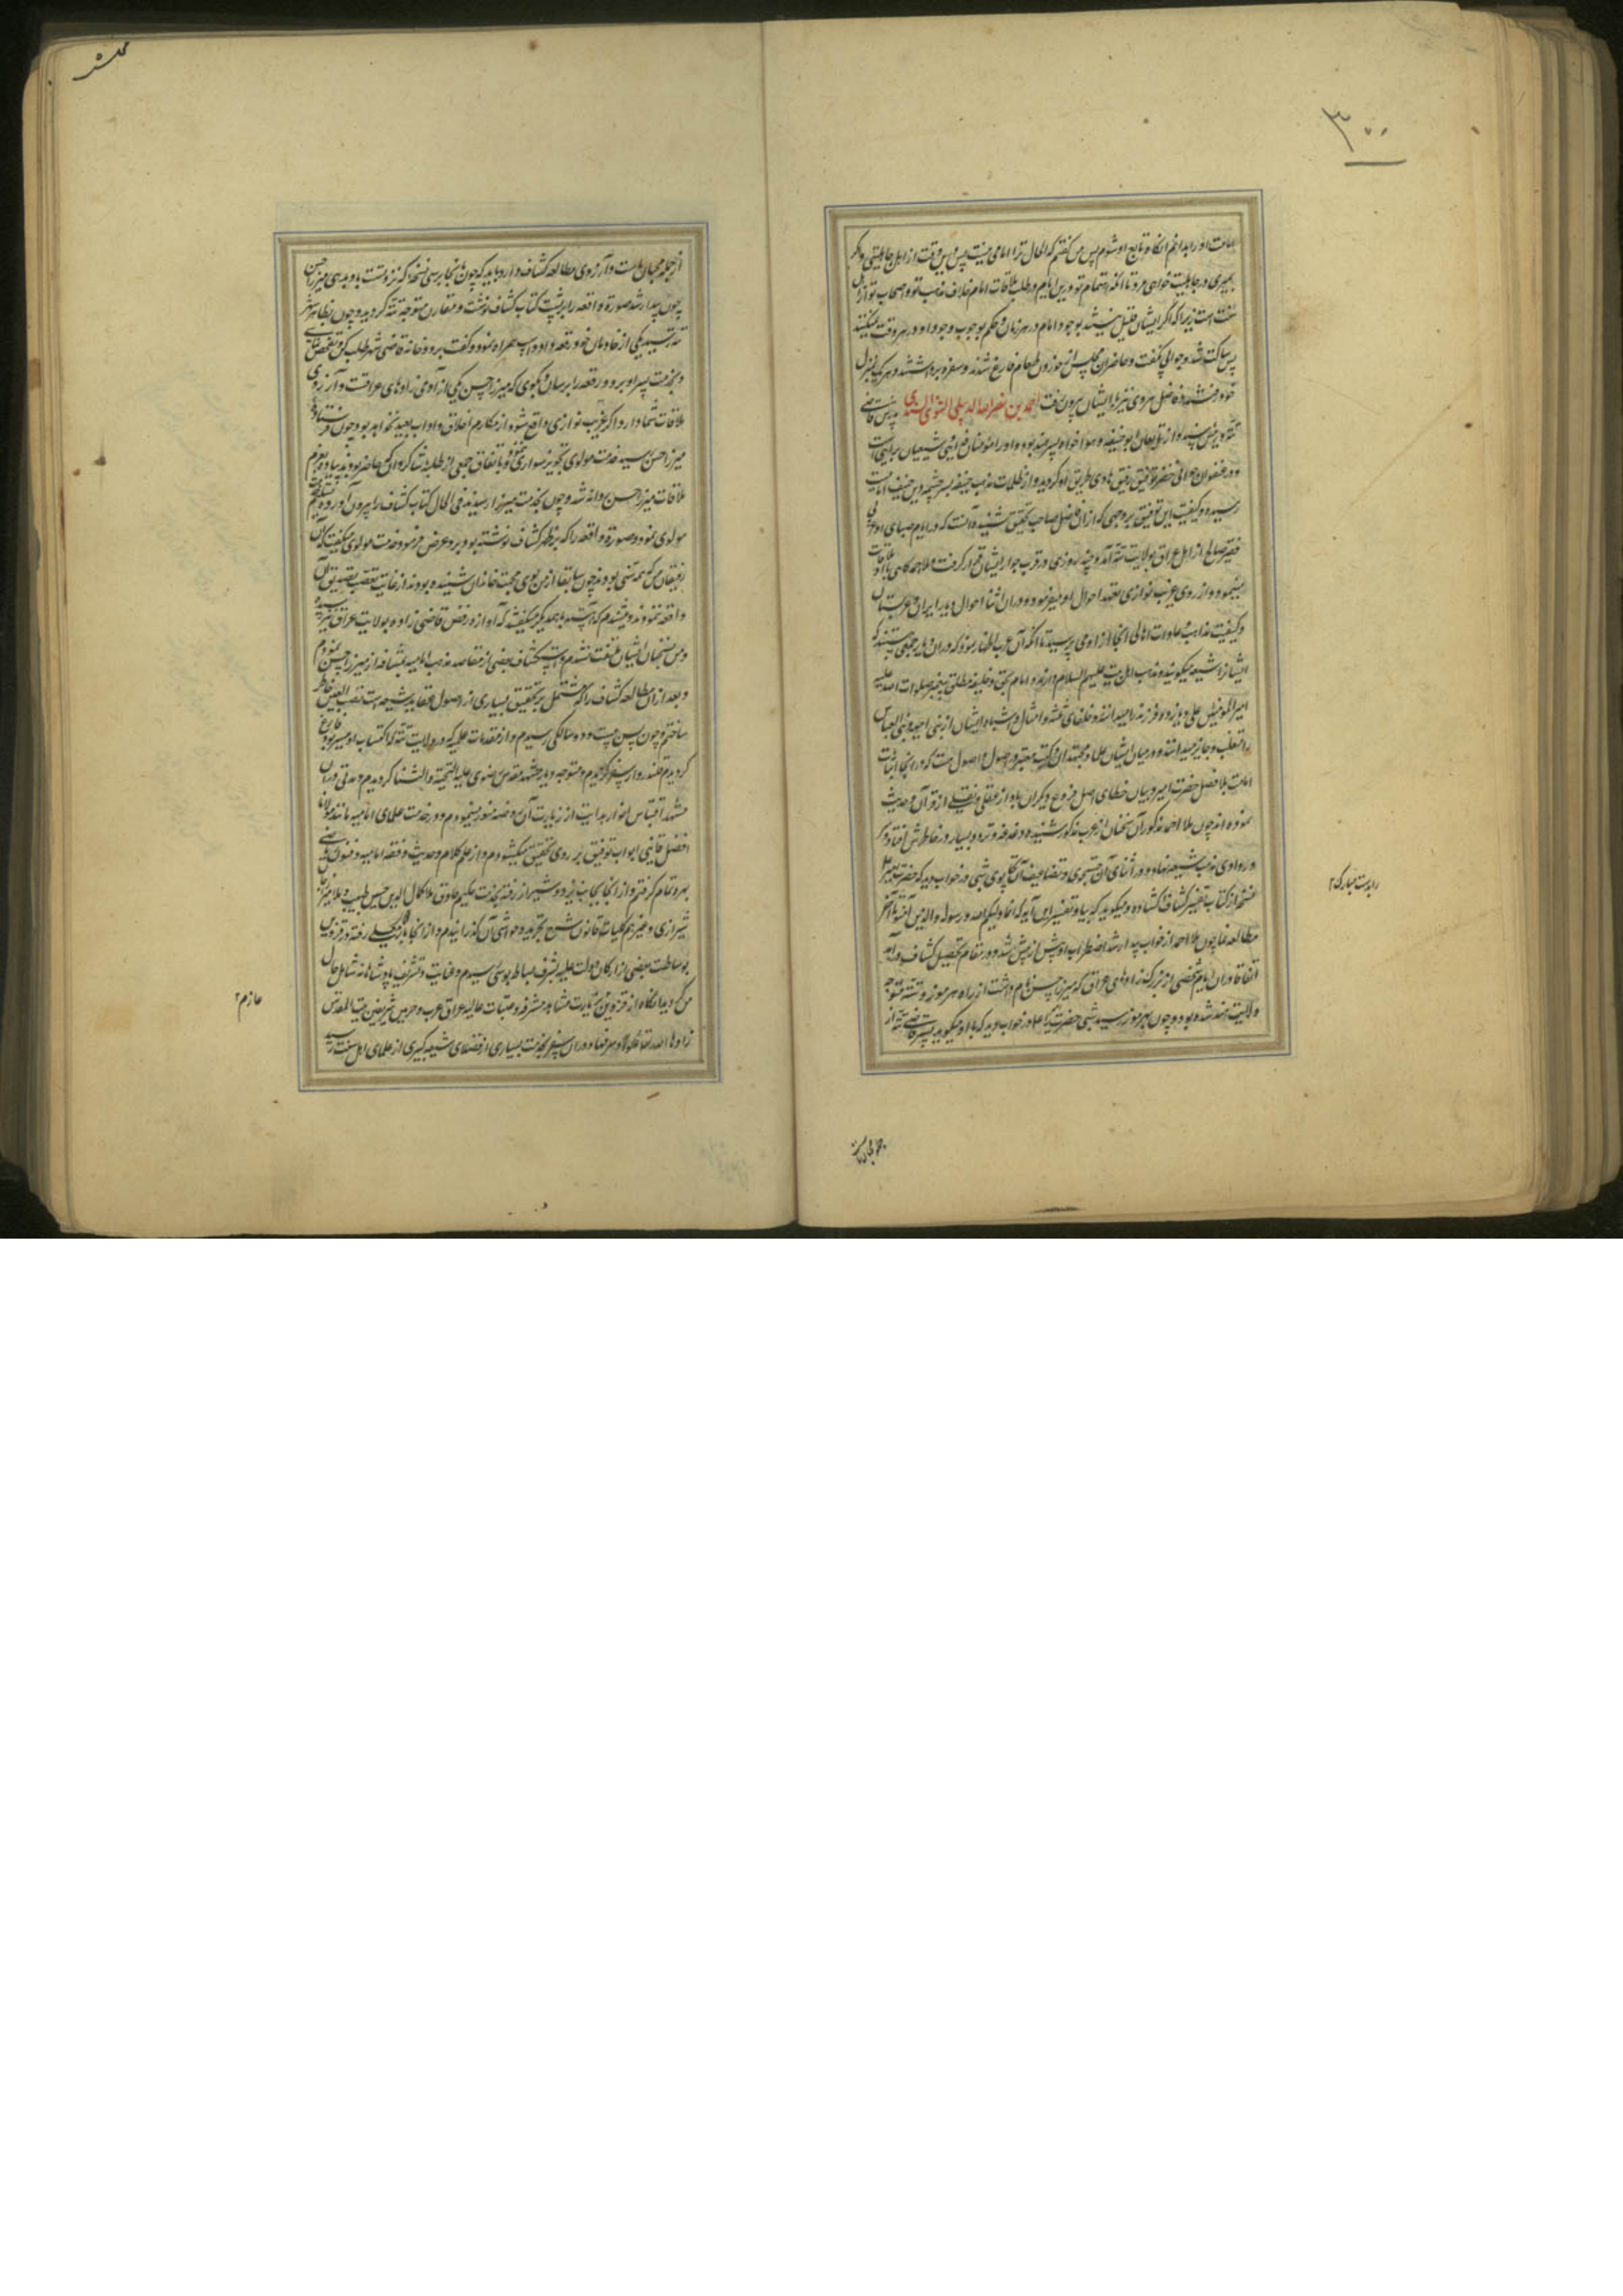 ۳۰۰
امامت او را بدانم آنگاه تابع او شوم پس من گفتم که الحال ترا امامی نیست پس درین وقت از اهل جاهلیتی و اگر
بمیری در جاهلیت خواهی مرد تا آنکه اهتمام تو درین ایام در طلب ملاقات امام خلاف مذهب تو و اصحاب تو از اهل
سنت است زیرا که اگر ایشان قایل میشدند بوجود امام در هر زمان و حکم بوجوب وجود او در هر وقت نمیکنند
پس ساکت شد و جوابی نگفت و حاضران مجلس از خوردن طعام فارغ شدند و سفره برداشتند و هر یک بمنزل
خود رفتند و فاضل هروی نیز با ایشان بیرون رفت احمد بن نصرالله الدیبلی التتوی السندی پدرش قاضی
تته و رئیس سند و از تابعان ابوحنیفه و هوا خواه پسر هند بود و او را
در عنفوان جوانی خضر توفیق رفیق هادی طریق او گردید و از ظلمات مذهب حنیفه بسر چشمه دین حنیف امامیت
رسید و کیفیت این توفیق بروجهی که از آن فاضل صاحب تحقیق شنیده آنست که در ایام صبای او عربی
فقیر صالح از اهل عراق بولایت تته آمد و چند روزی در قرب جوار ایشان قرار گرفت و ملا احمد گاهی با او ملاقات
مینمود و از روی غریب نوازی تعهد احوال او میفرمود و در اثنا احوال دیار ایران و عربستان
و کیفیت مذاهب و عادات اهالی آنجا از او می پرسید تا آنکه آن عرب اظهار نمود که در آن دیار جمعی هستند که
ایشان را شیعه میگویند و مذهب اهل بیت علیهم السلام دارند و امام بحق و خلیفه مطلق پیغمبر صلوات الله علیه
امیر المومنین علی و یازده فرزند را میدانند و خلفای ثلثه و امثال و اشباه ایشان از بنی امیه و بنی العباس
را متغلب و جایر میدانند و در میان ایشان علما و مجتهدان و کتب معتبره در اصول هست که در آنجا اثبات
امامت بلافصل حضرت امیر و بیان خطای دیگران با دلیل عقلی و نقلی از قرآن و حدیث
نموده اند چون ملا احمد مذکور آن سخنان از عرب مذکور شنید دغدغه و تردد بسیار در خاطرش افتاد و سر
در وادی مذهب شیعه نهاد و در اثنای آن جستجوی و تضاعیف آن تکاپوی شبی در خواب دید که حضرت امیر
نسخه از کتاب تفسیر کشاف گشاده و میگوید که بیا و تفسیر این آیه که انما ولیکم الله و رسوله والذین آمنوا تا آخر
مطالعه نما چون ملا احمد از خواب بیدار شد اضطراب او بیش از پیش شد و در مقام تحصیل کشاف در آمد
اتفاقا در آن ایام شخصی از بزرگ زادهای عراق که میرزا حسن نام داشت از راه هرموز و تته متوجه
ولایت هند شده بود و چون بهرموز رسید شبی حضرت امیر را در خواب دید که با او میگوید پسر قاضی تته از
را بدست مبارک
جمله محبان ماست
از جمله محبان ماست و آرزوی مطالعه کشاف دارد باید که چون بآنجا برسی نسخه که نزد تست باو بدهی میرزا حسن
چون بیدار شد صورت واقعه را بر پشت کتاب کشاف نوشت و مقارن متوجه تته گردید و چون بظاهر شهر
تته رسید یکی از خادمان خود رقعه داد و اسپ همراه نمود و گفت برو و خانه قاضی شهر طلب کن
و بخدمت پسر او برو و رقعه را برسان و بگوی که میرزا حسن یکی از آدمی زادهای عراقست و آرزوی
ملاقات شما دارد اگر غریب نوازی واقع شود از مکارم اخلاق و آداب بعید نخواهد بود چون فرستاده
میرزا حسن رسید خدمت مولوی تجویز سواری ننمود باتفاق جمعی از طلبه شاگردان که حاضر بودند پیاده بعزم
ملاقات میرزا حسن روانه شد و چون بخدمت میرزا رسیدند فی الحال کتاب کشاف را بیرون آورده تسلیم
مولوی نمود و صورت واقعه را که بر ظهر کشاف نوشته بود برو عرض فرمود و خدمت مولوی میگفت که آن
رفیقان من که همه سنی بودند چون سابقا از من بوی محبت خاندان شنیده بودند از غایت تعصب تصدیق آن
واقعه ننمودند و شنیدم که آهسته باهمدیگر میگفتند که آوازه رفض قاضی زاده بولایت عراق نیز رسیده
و من بسخنان ایشان ملتفت نشدم و بعضی از مقاصد مذهب امامیه بمشافهه از میرزا حسن شنودم
و بعد از آن مطالعه کشاف را که مشتمل بر تحقیق بسیاری از اصول عقاید شیعه است نصب العین خاطر
ساختم و چون بسن بیست و دو سالگی رسیدم و از مقدمات علمیه که در ولایت تته اکتساب او میسر بود فارغ
گردیدم قلندروار سفر گزیدم و متوجه دیار مشهد مقدس رضوی علیه التحیة والثنا گردیدم و مدتی در آن
مشهد اقتباس انوار هدایت از زیارت آن روضه منور مینمودم و در خدمت علمای امامیه مانند مولانا
افضل قاینی ابواب توفیق بر روی تحقیق میگشودم و از علم کلام و حدیث و فقه امامیه و فنون ریاضی
بهره تمام گرفتم و از آنجا بجانب یزد و شیراز رفته بخدمت حکیم حاذق ملا کمال الدین حسین طبیب و ملا میرزا جان
شیرازی و غیرهم کلیات قانون و شرح تجرید و حواشی آن گذرانیدم و از آنجا باردوی معلی رفته در قزوین
بوساطت بعضی از ارکان دولت علیه بشرف بساط بوسی رسیدم و عنایت و تشریف پادشاهانه شامل حال
من گردید آنگاه از قزوین بزیارت مشاهد مشرفه و عتبات عالیه عراق عرب و حرمین شریفین و بیت المقدس
زادها الله تعالی و در آن سفر بخدمت بسیاری از فضلای شیعه و کثیری از علمای اهل سنت رسید
عازم